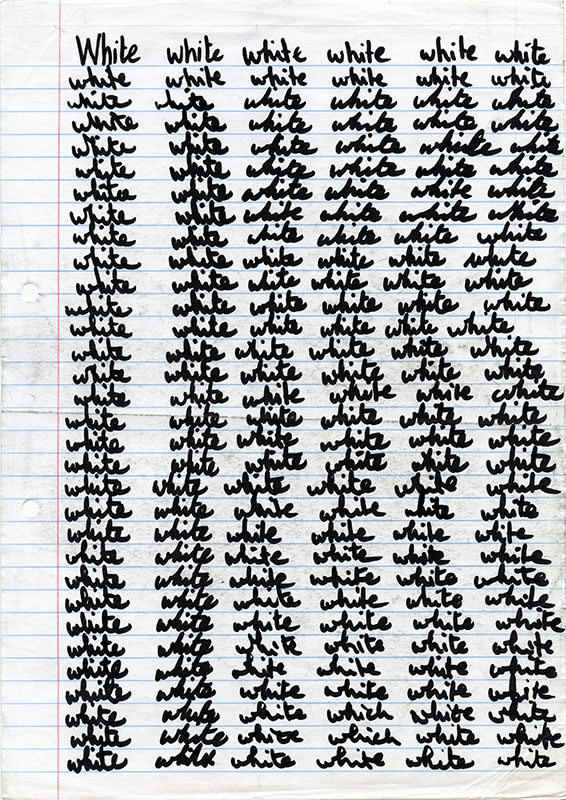 White white white white white white
white white white white white white
white white white white white white
white white white white white white
white white white white white white
white white white white white white
white white white white white white
white white white white white white
white white white white white white
white white white white white white
white white white white white white
white white white white white white
white white white white white white
white white white white white white
white white white white white white
white white white white white white
white white white white white white
white white white white white white
white white white white white white
white white white white white white
white white white white white white
white white white white white white
white white white white white white
white white white white white white
white white white white white white
white white white white white white
white white white white white white
white white white white white white
white white white white white white
white white white which white white
white white white which white white
white white white white white white